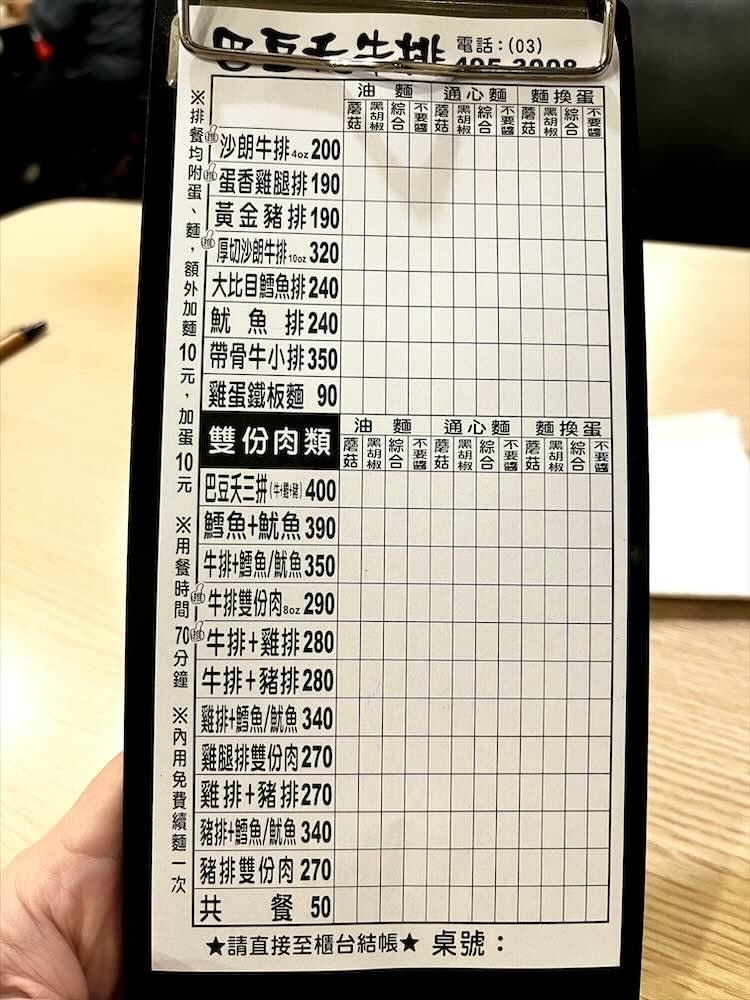 巴豆夭牛排 電話：(03)
油麵 通心麵 麵換蛋
蘑菇 黑胡椒 綜合 不要醬 蘑菇 黑胡椒 綜合 不要醬 蘑菇 黑胡椒 綜合 不要醬
推 沙朗牛排4oz 200
推 蛋香雞腿排 190
黃金豬排 190
推 厚切沙朗牛排10oz 320
大比目鱈魚排 240
魷魚排 240
帶骨牛小排 350
雞蛋鐵板麵 90
雙份肉類 油麵 通心麵 麵換蛋
蘑菇 黑胡椒 綜合 不要醬 蘑菇 黑胡椒 綜合 不要醬 蘑菇 黑胡椒 綜合 不要醬
巴豆夭三拼(牛+雞+豬) 400
鱈魚+魷魚 390
牛排+鱈魚/魷魚 350
推 牛排雙份肉8oz 290
推 牛排+雞排 280
牛排+豬排 280
雞排+鱈魚/魷魚 340
雞腿排雙份肉 270
雞排+豬排 270
豬排+鱈魚/魷魚 340
豬排雙份肉 270
共餐 50
★請直接至櫃台結帳★ 桌號：
※排餐均附蛋、麵，額外加麵10元，加蛋10元 ※用餐時間70分鐘 ※內用免費續麵一次